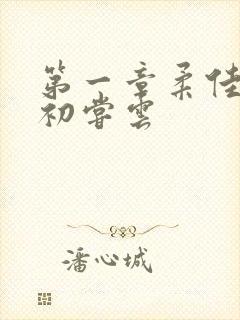 第一章柔佳
初尝雲
潘心城